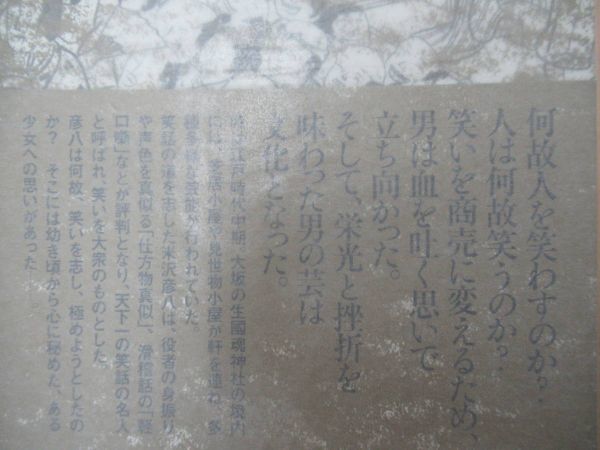 何故人を笑わすのか？
人は何故笑うのか？
笑いを商売に変えるため、
男は血を吐く思いで
立ち向かった。
そして、栄光と挫折を
味わった男の芸は
文化となった。
江戸時代中期、大坂の生國魂神社の境内
には、芝居小屋や見世物小屋が軒を連ね、多
種多様な芸能が行われていた。
笑話の道を志した米沢彦八は、役者の身振り
や声色を真似る「仕方物真似」、滑稽話の「軽
口噺」などが評判となり、天下一の笑話の名人
と呼ばれ、笑いを大衆のものとした。
彦八は何故、笑いを志し、極めようとしたの
か？ そこには幼き頃から心に秘めた、ある
少女への思いがあった――